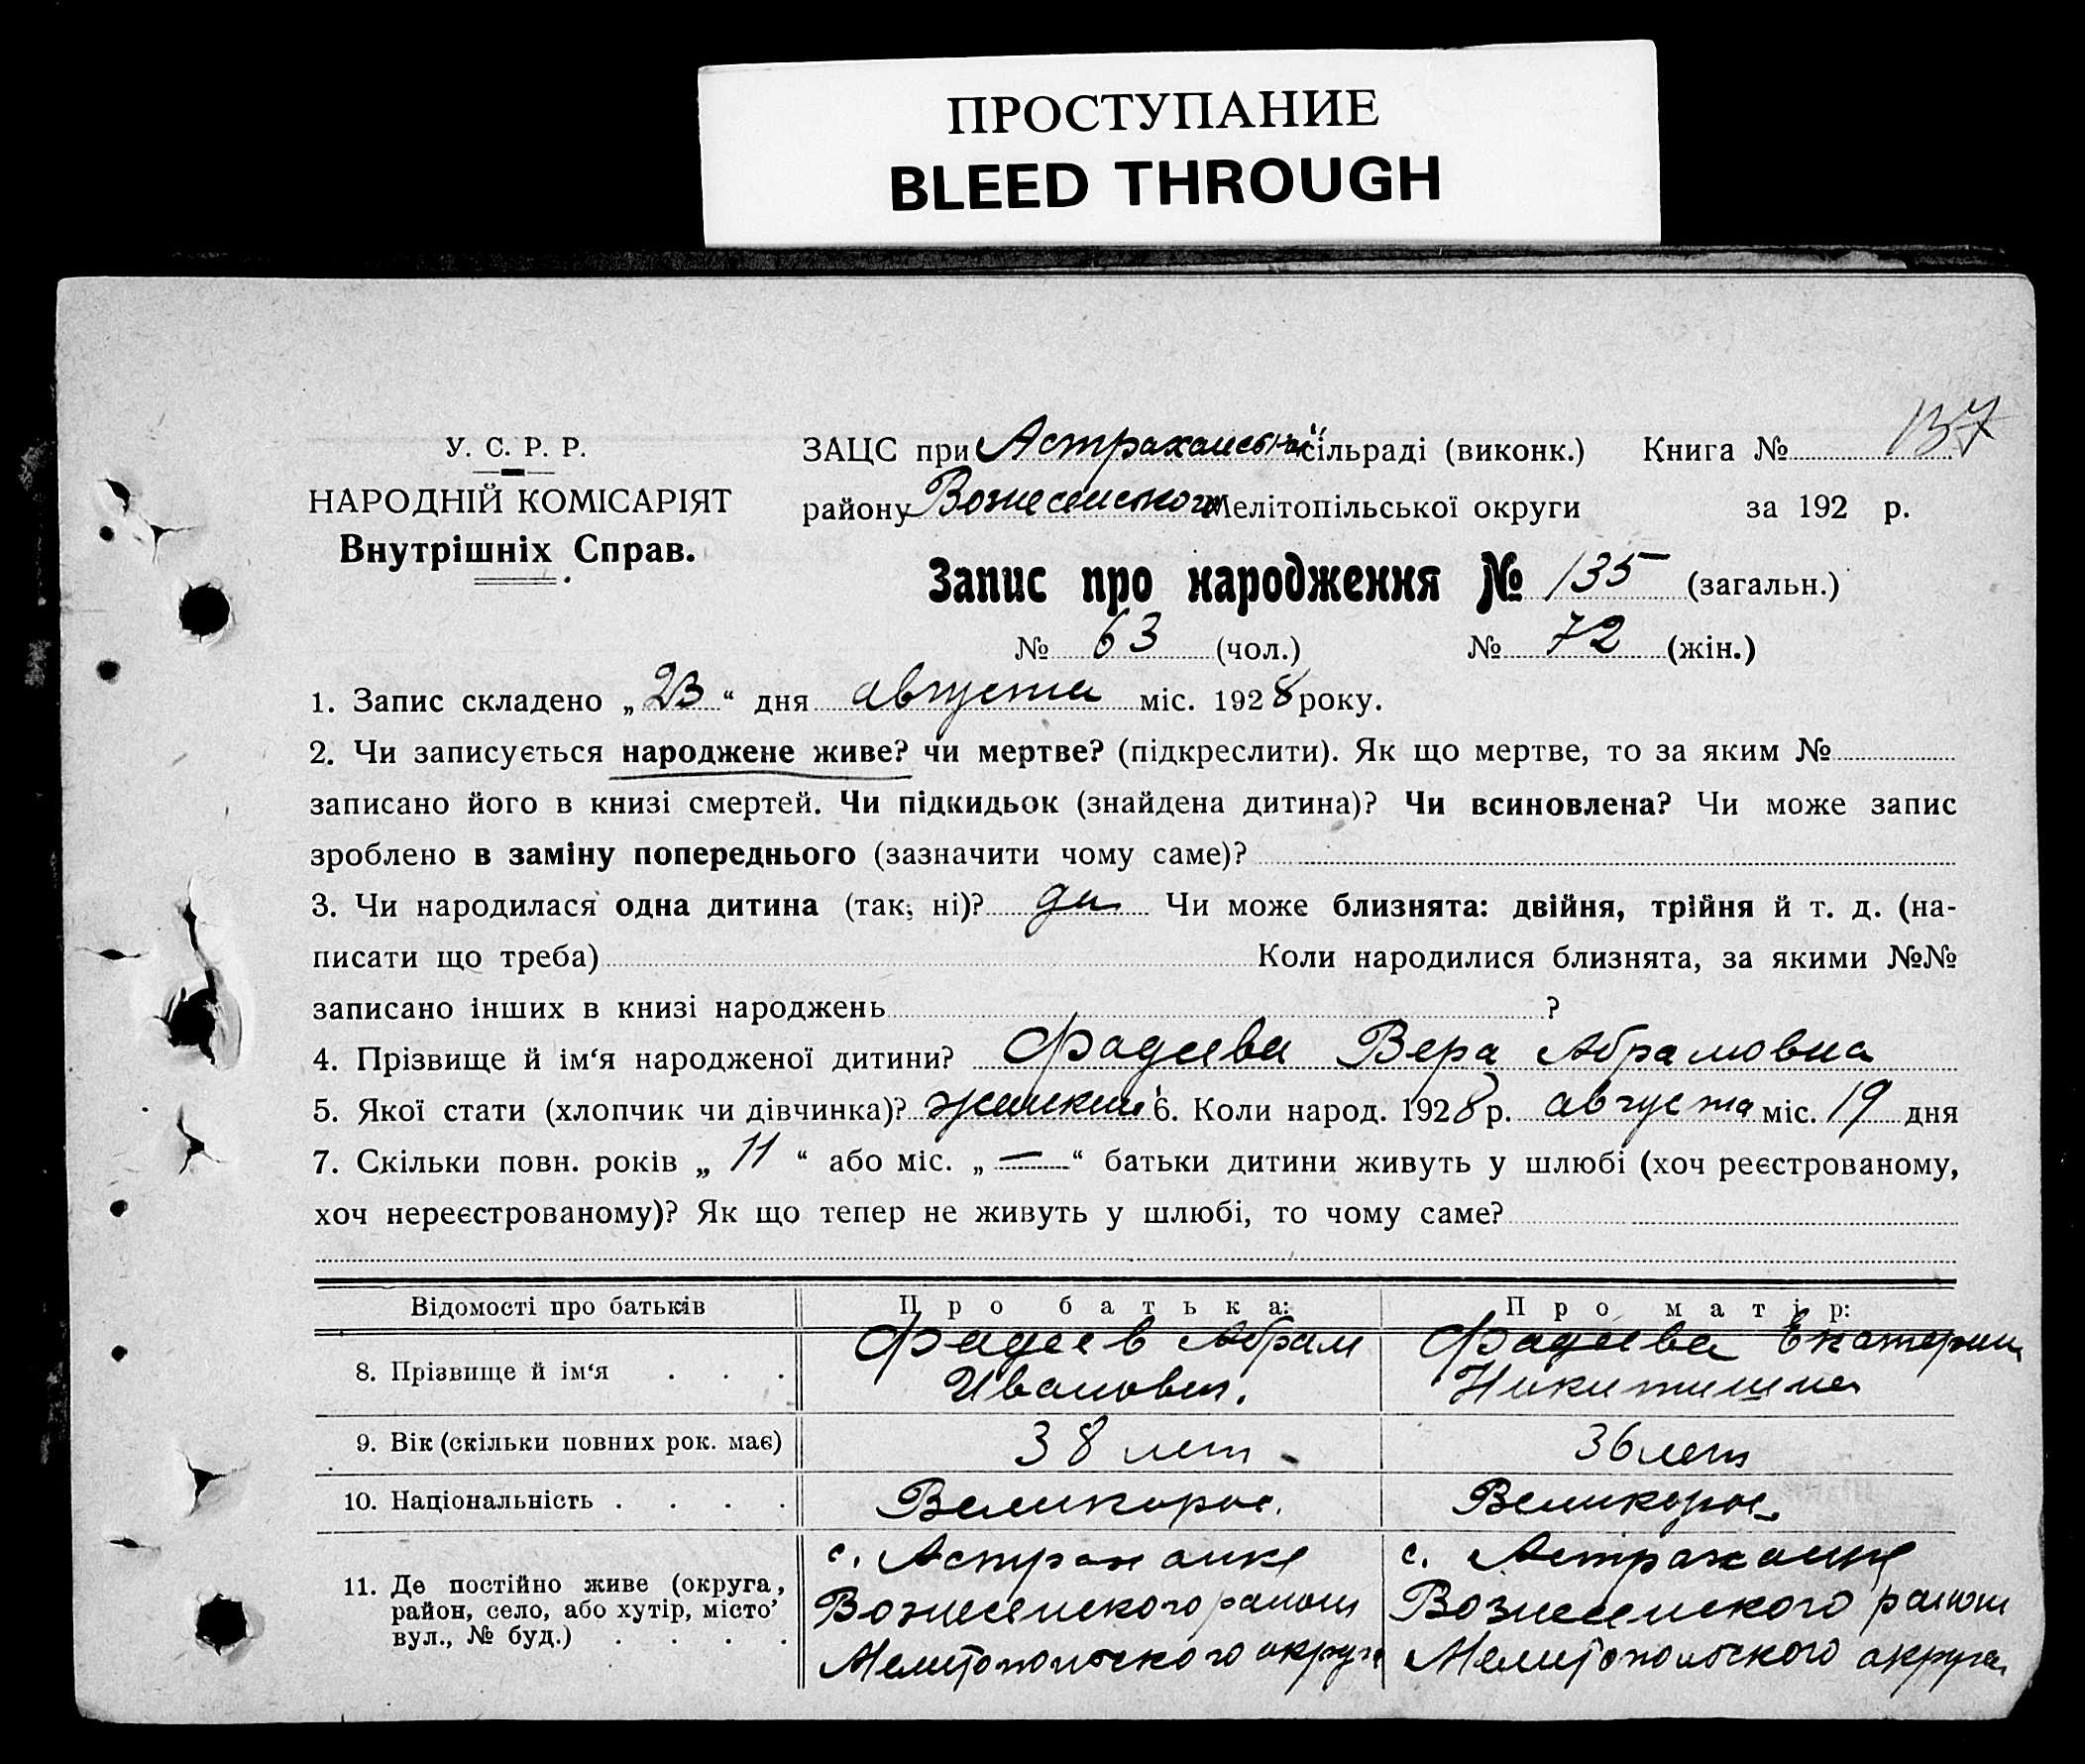 ПРОСТУПАНИЕ
BLEED THROUGH
137
У. С. Р. Р.
НАРОДНІЙ КОМІСАРІЯТ
Внутрішніх Справ.
ЗАЦС при Астраханской сільраді (виконк.) Книга №
району Вознесенского Мелітопільської округи за 192 р.
Запис про народження № 135 (загальн.)
№ 63 (чол.) № 72 (жін.)
1. Запис складено „ 23 “ дня августа міс. 1928 року.
2. Чи записується народжене живе? чи мертве? (підкреслити). Як що мертве, то за яким №
записано його в книзі смертей. Чи підкидьок (знайдена дитина)? Чи всиновлена? Чи може запис
зроблено в заміну попереднього (зазначити чому саме)?
3. Чи народилася одна дитина (так, ні)? да Чи може близнята: двійня, трійня й т. д. (на-
писати що треба) Коли народилися близнята, за якими №№
записано інших в книзі народжень ?
4. Прізвище й ім‘я народженої дитини? Фадеева Вера Абрамовна
5. Якої стати (хлопчик чи дівчинка)? 6. Коли народ. 1928 р. августа міс. 19 дня
7. Скільки повн. років „ 11 “ або міс. „ — “ батьки дитини живуть у шлюбі (хоч реєстрованому,
хоч нереєстрованому)? Як що тепер не живуть у шлюбі, то чому саме?
Відомості про батьків Про батька: Про матір:
8. Прізвище й ім‘я . . . Фадеев Абрам Фадеева Екатерина
Иванович. Никитишна
9. Вік (скільки повних рок. має) 38 лет 36 лет
10. Національність . . . . Великорос. Великорос.
11. Де постійно живе (округа, район, село, або хутір, місто, вул., № буд.) . . . . с. Астраханке с. Астраханке
Вознесенского района Вознесенского района
Мелитопольского округа Мелитопольского округа